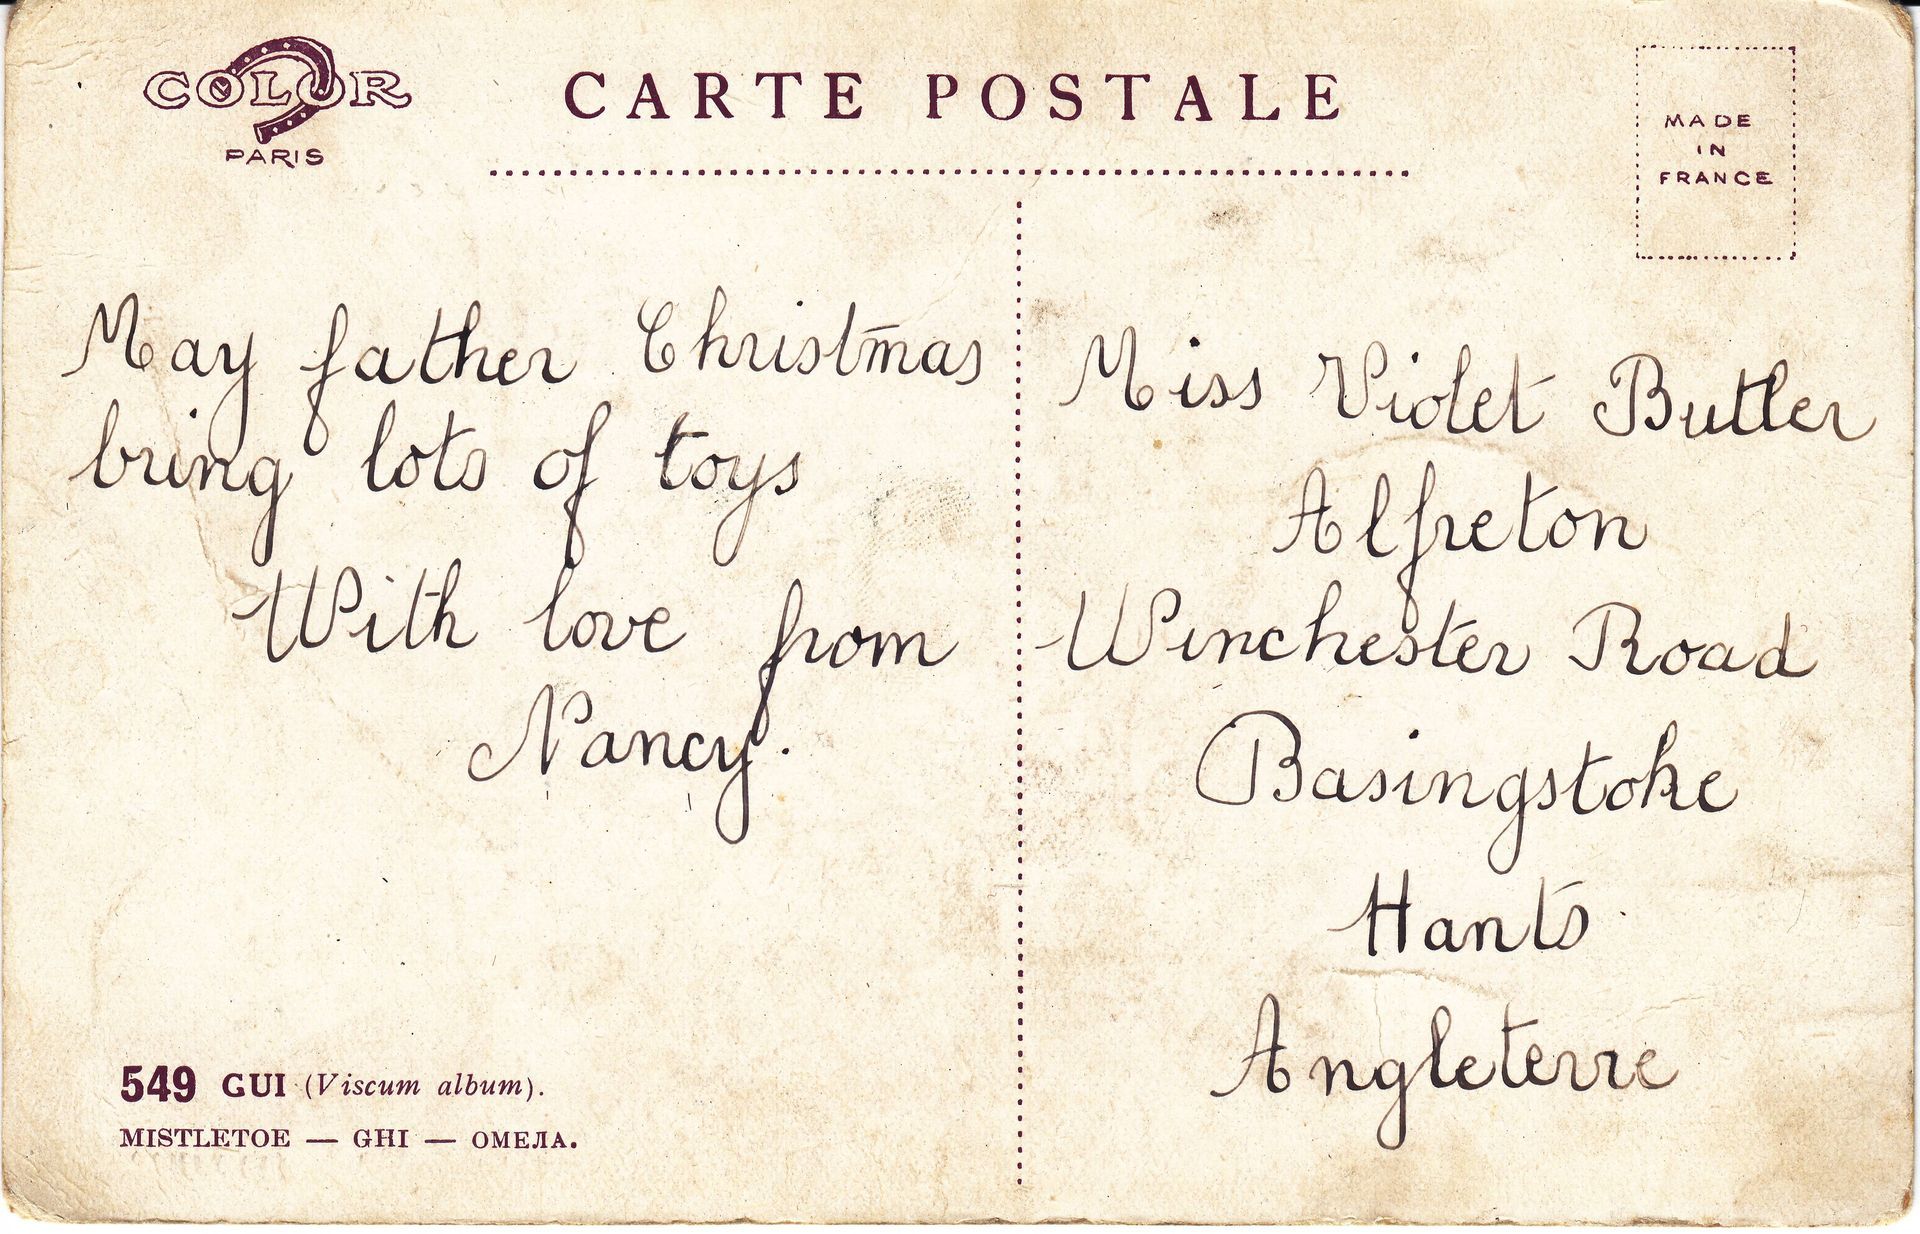 COLOR
PARIS
CARTE POSTALE
MADE
IN
FRANCE
May father Christmas
bring lots of toys
With love from
Nancy.
Miss Violet Butler
Alfreton
Winchester Road
Basingstoke
Hants
Angleterre
549 GUI (Viscum album).
MISTLETOE — GHI — ОМЕЛА.